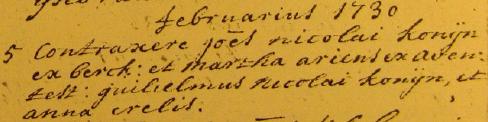 februarius 1730
5 Contraxere joēs nicolai konijn
ex berck: et martha ariens ex aven:
test: guilielmus nicolai konijn, et
anna crelis.